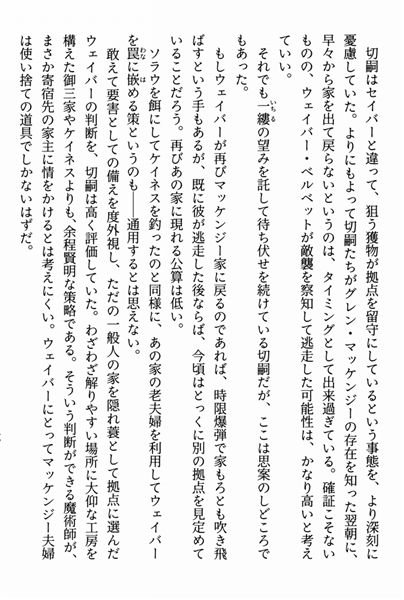 切嗣はセイバーと違って、狙う獲物が拠点を留守にしているという事態を、より深刻に
憂慮していた。よりにもよって切嗣たちがグレン・マッケンジーの存在を知った翌朝に、
早々から家を出て戻らないというのは、タイミングとして出来過ぎている。確証こそない
ものの、ウェイバー・ベルベットが敵襲を察知して逃走した可能性は、かなり高いと考え
ていい。
それでも一縷の望みを託して待ち伏せを続けている切嗣だが、ここは思案のしどころで
もあった。
もしウェイバーが再びマッケンジー家に戻るのであれば、時限爆弾で家もろとも吹き飛
ばすという手もあるが、既に彼が逃走した後ならば、今頃はとっくに別の拠点を見定めて
いることだろう。再びあの家に現れる公算は低い。
ソラウを餌にしてケイネスを釣ったのと同様に、あの家の老夫婦を利用してウェイバー
を罠に嵌める策というのも――通用するとは思えない。
敢えて要害としての備えを度外視し、ただの一般人の家を隠れ蓑として拠点に選んだ
ウェイバーの判断を、切嗣は高く評価していた。わざわざ解りやすい場所に大仰な工房を
構えた御三家やケイネスよりも、余程賢明な策略である。そういう判断ができる魔術師が、
まさか寄宿先の家主に情をかけるとは考えにくい。ウェイバーにとってマッケンジー夫婦
は使い捨ての道具でしかないはずだ。